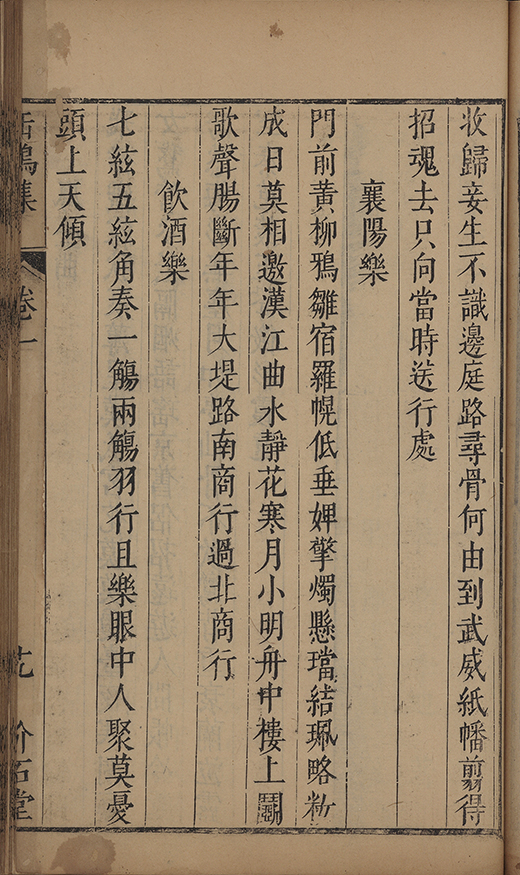 收歸妾生不識邊庭路尋骨何由到武威紙幡剪得
招魂去只向當時送行處
襄陽樂
門前黃柳鴉雛宿羅幌低垂婢擎燭懸璫結珮略粧
成日莫相邀漢江曲水靜花寒月小明舟中樓上鬬
歌聲腸斷年年大堤路南商行過北商行
飲酒樂
七絃五絃角奏一觴兩觴羽行且樂眼中人聚莫憂
頭上天傾
卷一